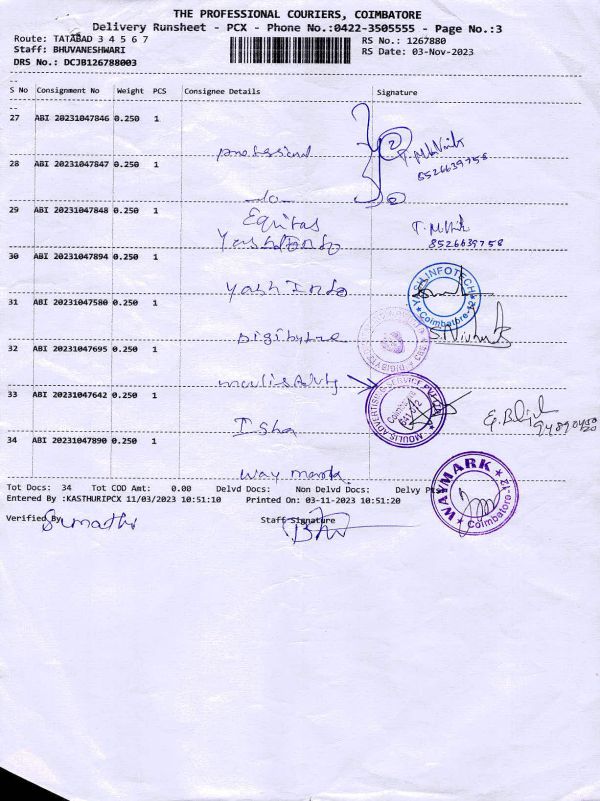 THE PROFESSIONAL COURIERS, COIMBATORE
Delivery Runsheet - PCX - Phone No.:0422-3505555 - Page No.:3
Route: TATABAD 3 4 5 6 7 RS No.: 1267880
Staff: BHUVANESHWARI RS Date: 03-Nov-2023
DRS No.: DCJB126788003
S No Consignment No Weight PCS Consignee Details Signature
27 ABI 20231047846 0.250 1
professional
28 ABI 20231047847 0.250 1
8526639758
do
29 ABI 20231047848 0.250 1
Equitas
8526639758
30 ABI 20231047894 0.250 1
Yash Info
YASH INFOTECH
Coimbatore-12
31 ABI 20231047580 0.250 1
Digibyte
32 ABI 20231047695 0.250 1
MOULIS ADVERTISING SERVICE
Coimbatore
641 012
33 ABI 20231047642 0.250 1
Isha
34 ABI 20231047890 0.250 1
Way mark
WAYMARK
Coimbatore-12
Tot Docs: 34 Tot COD Amt: 0.00 Delvd Docs: Non Delvd Docs: Delvy
Entered By :KASTHURIPCX 11/03/2023 10:51:10 Printed On: 03-11-2023 10:51:20
Verified By Staff Signature
Sumathi